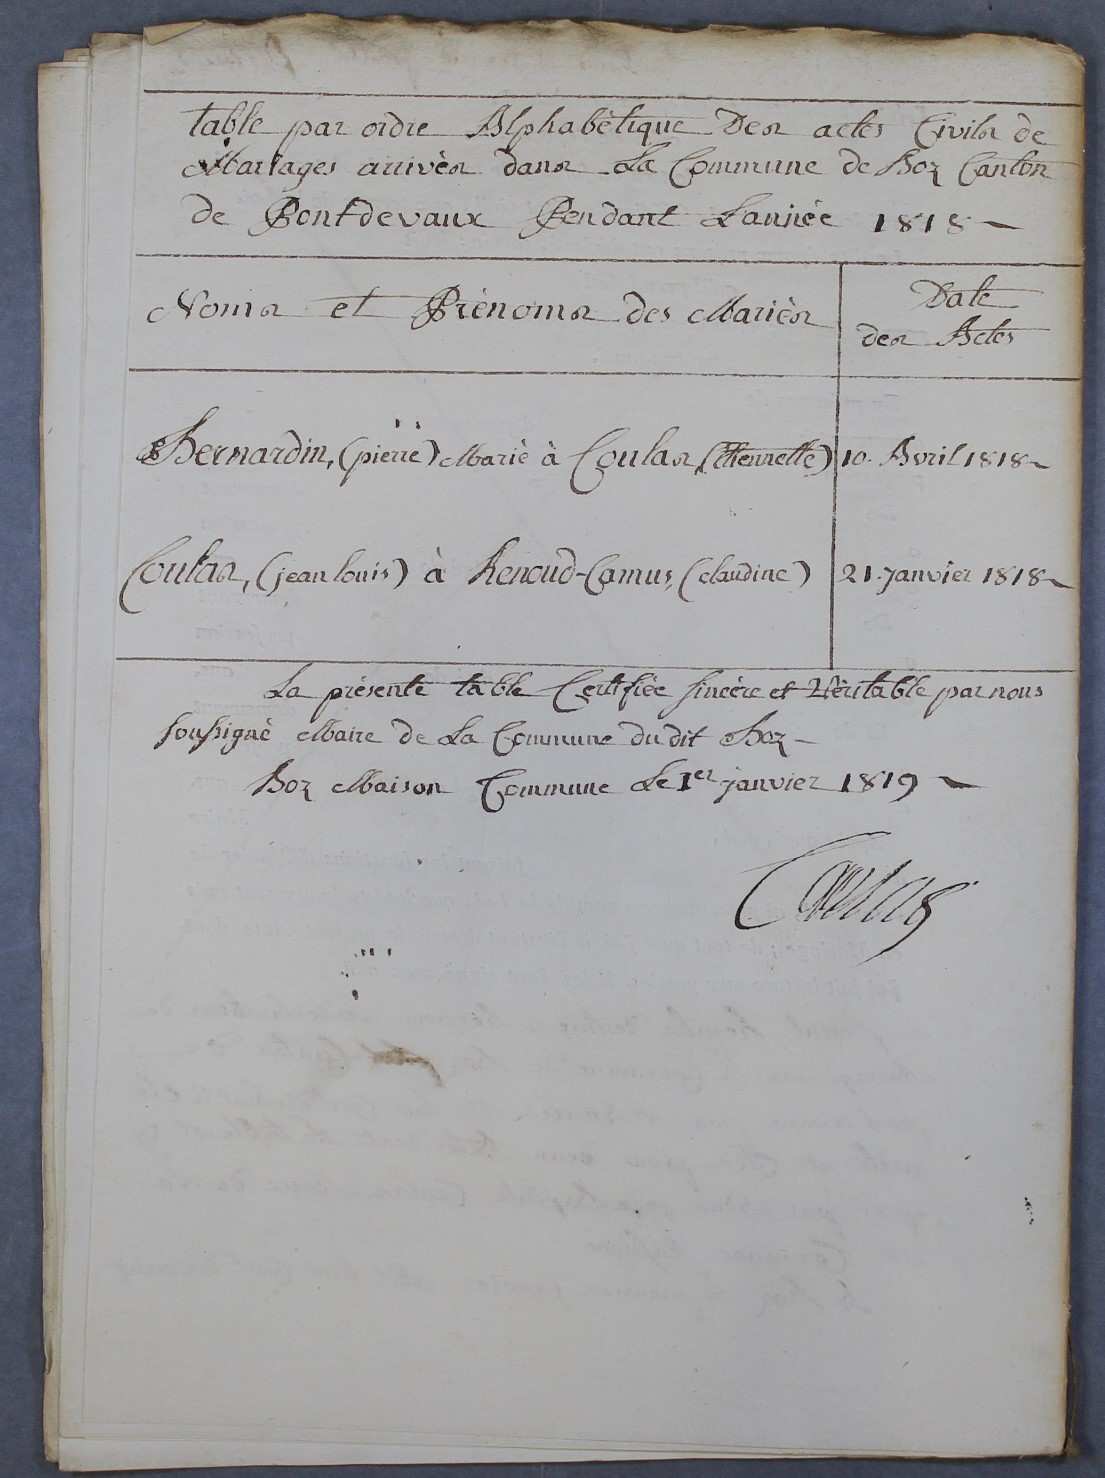 table par ordre Alphabètique Des actes Civils de
Mariages arrivès dans La Commune de Boz Canton
de Pontdevaux Pendant L'année 1818
Noms et Prènoms des Mariès
Date
des Actes
Bernardin, (pierre) Mariè à Coulas, (Etiennette) 10. Avril 1818
Coulas, (jean louis) à Renoud-Camus, (claudine) 21. janvier 1818
La présente table Certifiée sincère et Vèritable par nous
soussignè Maire de La Commune du dit Boz
Boz Maison Commune Le 1er janvier 1819
Coulas